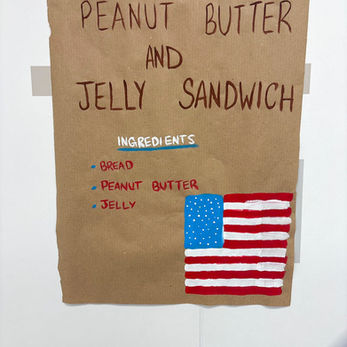 PEANUT BUTTER
AND
JELLY SANDWICH
INGREDIENTS
• BREAD
• PEANUT BUTTER
• JELLY